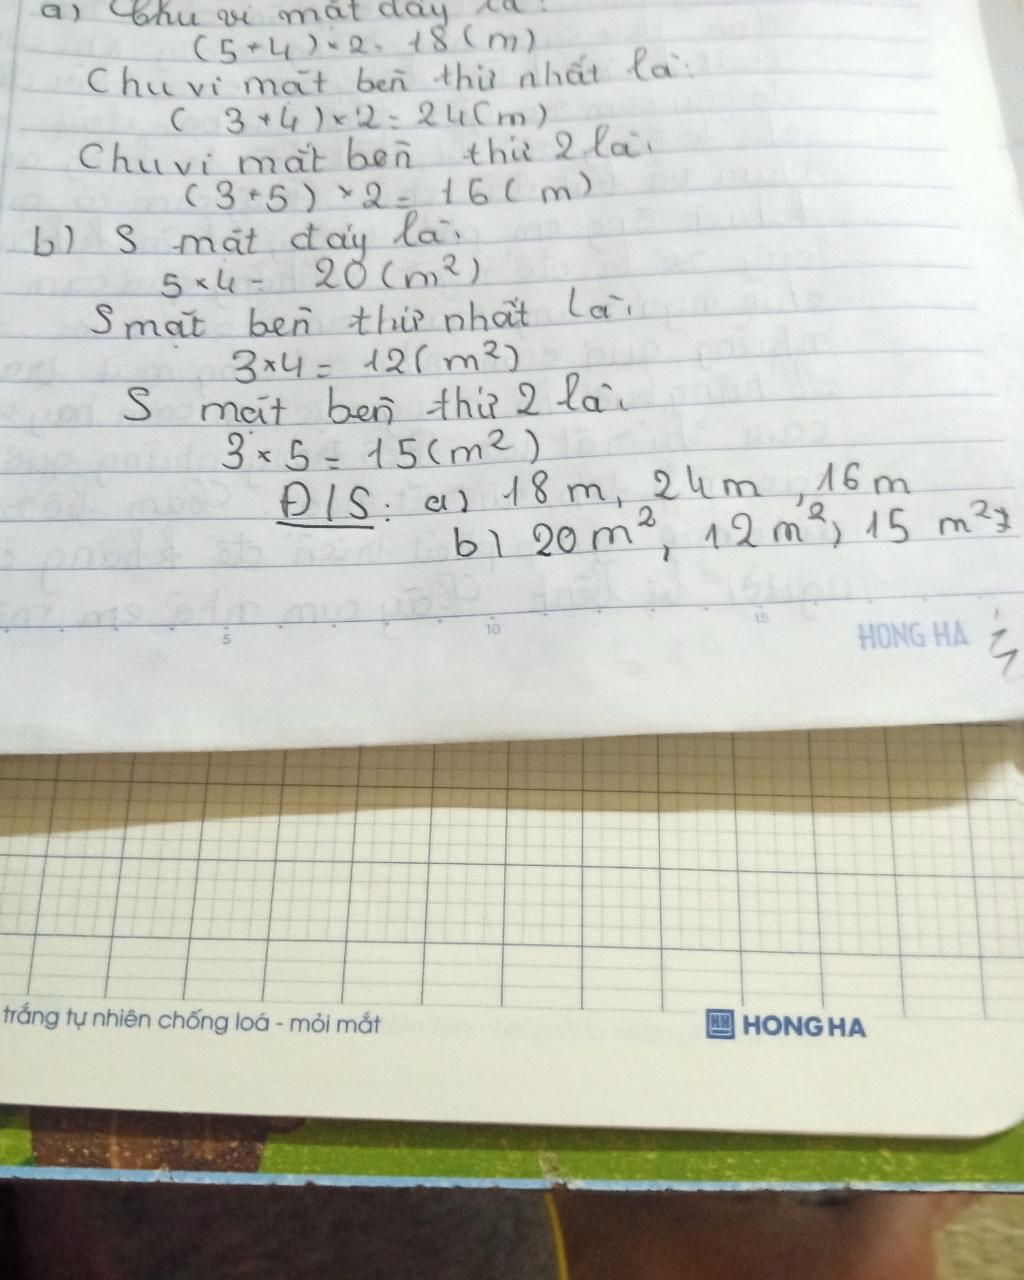 a) Chu vi mặt đáy là:
(5+4)×2= 18(m)
Chu vi mặt bên thứ nhất là:
( 3+4)×2= 24(m)
Chu vi mặt bên thứ 2 là:
(3+5) ×2= 16(m)
b) S mặt đáy là:
5×4= 20(m²)
S mặt bên thứ nhất là:
3×4= 12(m²)
S mặt bên thứ 2 là:
3×5= 15(m²)
Đ/S: a) 18 m, 24m, 16m
b) 20m², 12m², 15 m²
5 10 15
HONG HA
trắng tự nhiên chống loá - mỏi mắt
HONG HA